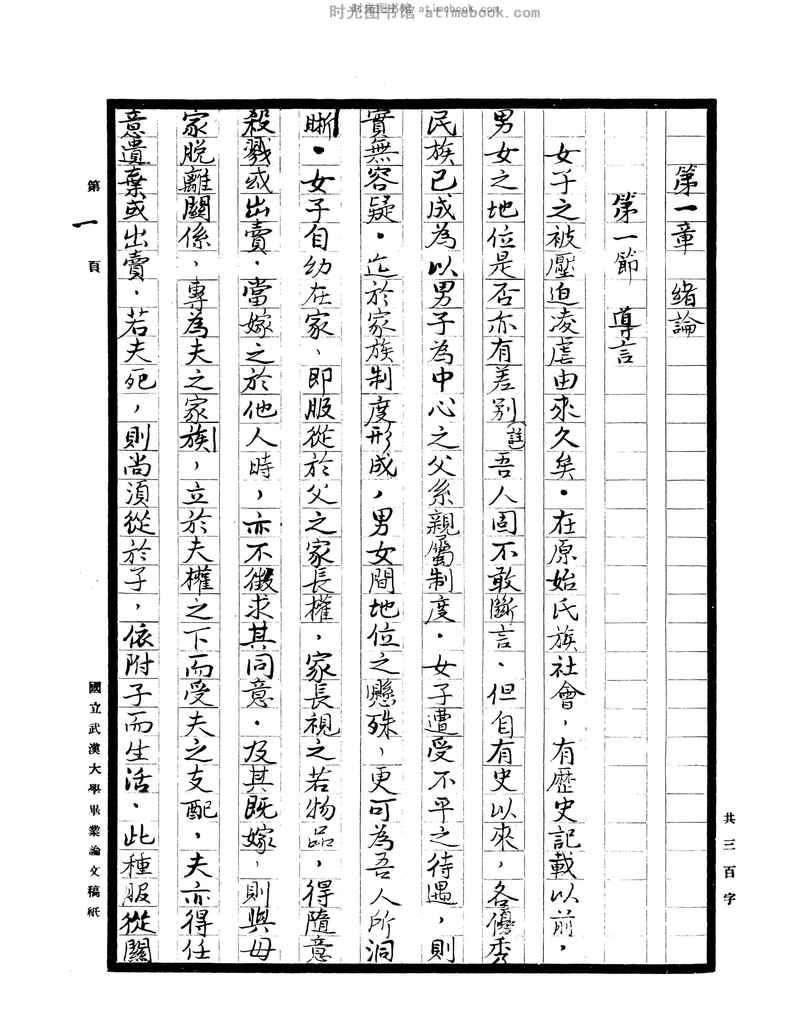 时光图书馆 atimebook.com
第一章 緒論
第一節 導言
女子之被壓迫凌虐由來久矣．在原始氏族社會，有歷史記載以前，
男女之地位是否亦有差別（註）吾人固不敢斷言、但自有史以來，各優秀
民族已成為以男子為中心之父系親屬制度．女子遭受不平之待遇，則
實無容疑．迄於家族制度形成，男女間地位之懸殊，更可為吾人所洞
晰．女子自幼在家、即服從於父之家長權，家長視之若物品，得隨意
殺戮或出賣．當嫁之於他人時，亦不徵求其同意．及其既嫁，則與母
家脫離關係，專為夫之家族，立於夫權之下而受夫之支配，夫亦得任
意遺棄或出賣．若夫死，則尚須從於子，依附子而生活．此種服從關
第一頁
國立武漢大學畢業論文稿紙
共三百字